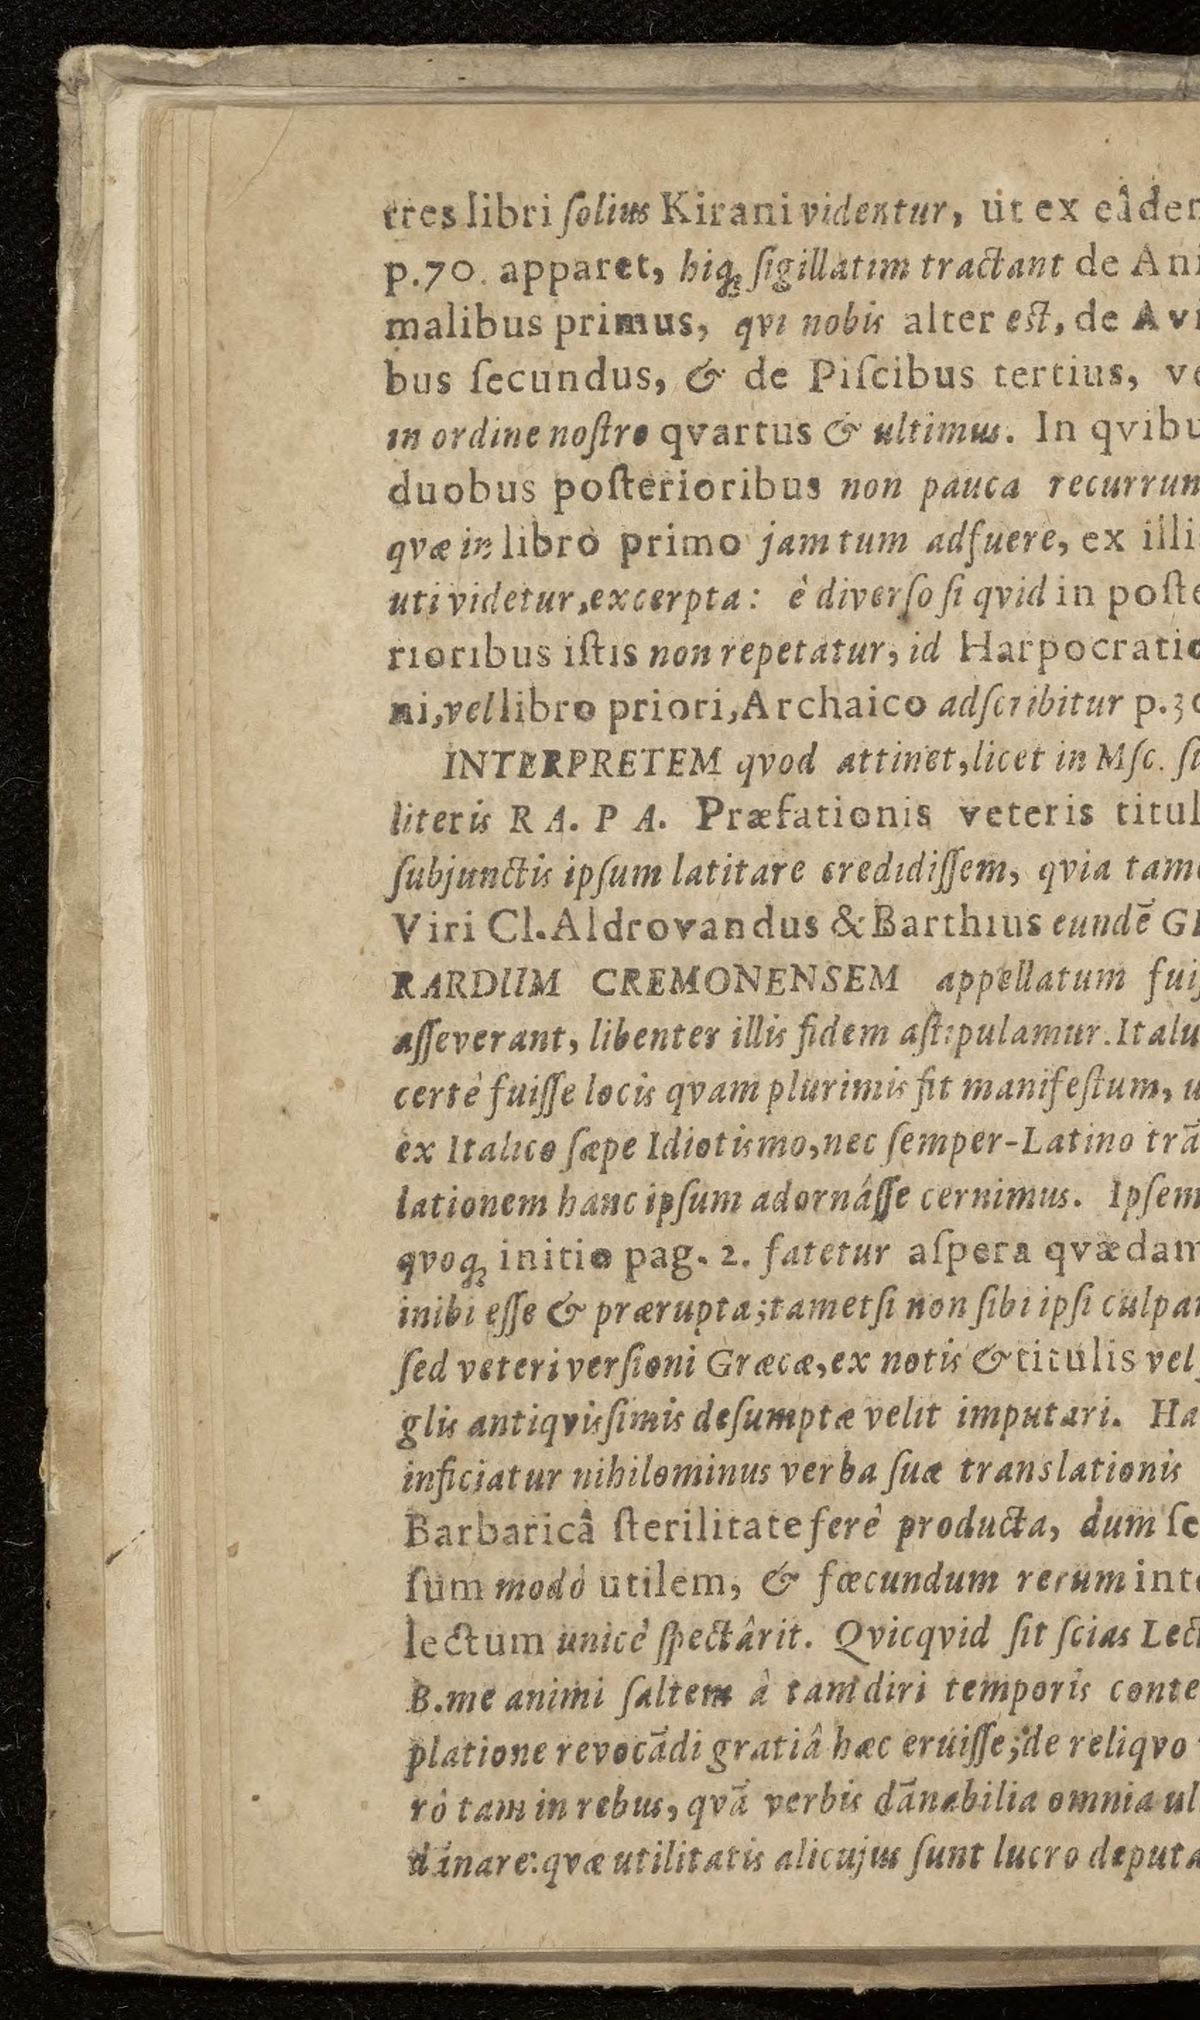 tres libri ſolius Kirani videntur, ut ex eâdem
p.70. apparet, hiq; ſigillatim tractant de Ani-
malibus primus, qvi nobis alter eſt, de Avi-
bus ſecundus, & de Piſcibus tertius, ve
in ordine noſtro qvartus & ultimus. In qvibu
duobus poſterioribus non pauca recurrun
qvæ in libro primo jam tum adfuere, ex illi
uti videtur, excerpta: è diverſo ſi qvid in poſte
rioribus iſtis non repetatur, id Harpocratio
ni, vel libro priori, Archaico adſcribitur p.30
INTERPRETEM qvod attinet, licet in Mſc. ſi
literis R A. P A. Præfationis veteris titul
ſubjunctis ipſum latitare credidiſſem, qvia tame
Viri Cl. Aldrovandus & Barthius eundē GE
RARDUM CREMONENSEM appellatum fuiſ
aſſeverant, libenter illis fidem aſtipulamur. Italu
certè fuiſſe locis qvam plurimis fit manifeſtum, u
ex Italico ſæpe Idiotismo, nec ſemper-Latino trā
lationem hanc ipſum adornâſſe cernimus. Ipſem
qvoq; initio pag. 2. fatetur aſpera qvædam
inibi eſſe & prærupta; tametſi non ſibi ipſi culpam
ſed veteri verſioni Græcæ, ex notis & titulis vel
glis antiqviſſimis deſumptæ velit imputari. Ha
inficiatur nihilominus verba ſuæ translationis
Barbaricâ ſterilitate ferè producta, dum ſe
ſum modò utilem, & fœcundum rerum inte
lectum unicè ſpectârit. Qvicqvid ſit ſcias Lect
B. me animi ſaltem à tam diri temporis conte
platione revocādi gratiâ hæc eruiſſe; de reliqvo
rò tam in rebus, qvā verbis dānabilia omnia ul
dinare: qvæ utilitatis alicujus ſunt lucro deputa